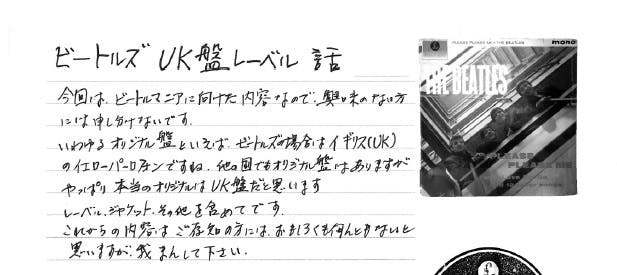 ビートルズ UK盤レーベル 話
今回は、ビートルマニアに向けた内容なので、興味のない方
には申し分けないです.
いわゆるオリジナル盤といえば、ビートルズの場合はイギリス(UK)
のイエローパーロフォンですね. 他の国でもオリジナル盤はありますが
やっぱり本当のオリジナルはUK盤だと思います
レーベル、ジャケット、その他を含めてです.
これからの内容はご存知の方には、おもしろくも何ともないと
思いますが、我まんして下さい.
PLEASE PLEASE ME • THE BEATLES
mono
THE BEATLES
PLEASE
PLEASE ME
£